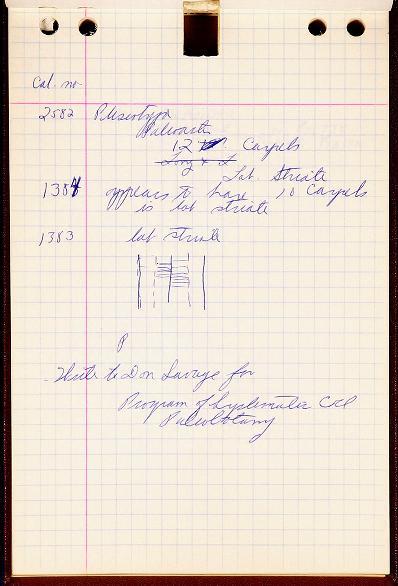 Cal. no.
2582 Plesiotype
12 Carpels
Lat. Striate
1384 appears to have 10 Carpels
is lat striate
1383 lat striate
P
- Write to Don Savage for
Program of Systematic
Paleobotany